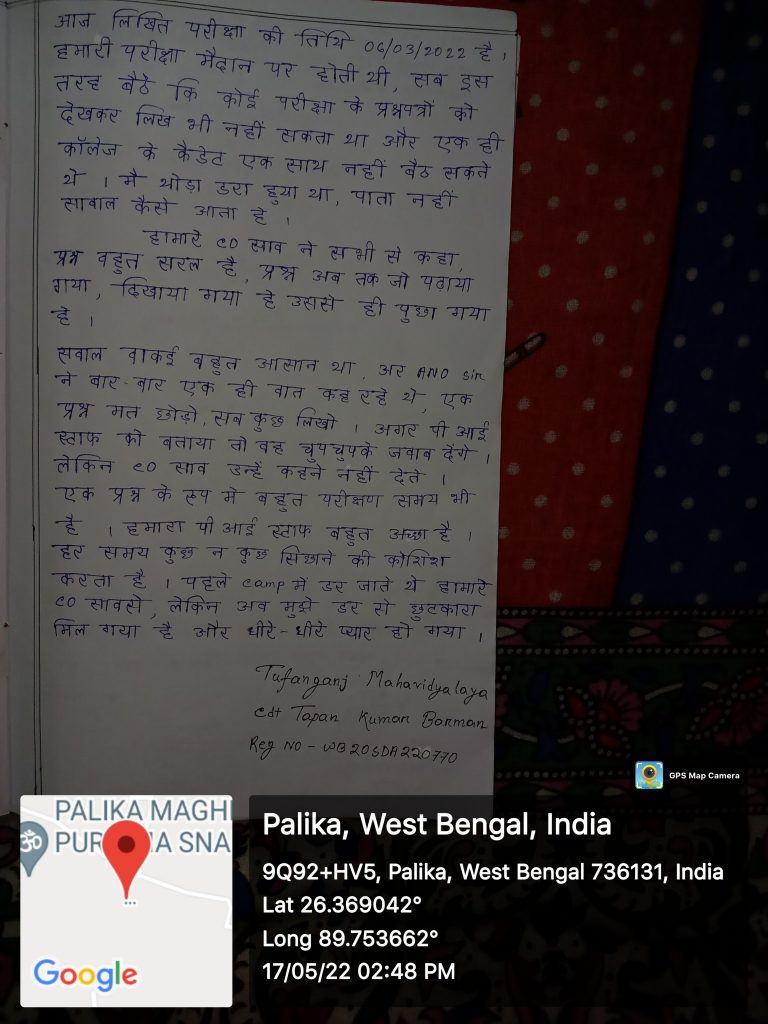 आज लिखित परीक्षा की तिथि 06/03/2022 है ।
हमारी परीक्षा मैदान पर होती थी, सब इस
तरह बैठे कि कोई परीक्षा के प्रश्नपत्रों को
देखकर लिख भी नहीं सकता था और एक ही
कॉलेज के कैडेट एक साथ नहीं बैठ सकते
थे । मै थोड़ा डरा हुया था, पाता नहीं
सावाल कैसे आता है ।
हामारे CO साव ने सभी से कहा,
प्रश्न बहुत सरल है, प्रश्न अब तक जो पढ़ाया
गया, दिखाया गया है उससे ही पुछा गया
है ।
सवाल वाकई बहुत आसान था, अर ANO sir
ने बार-बार एक ही वात कह रहे थे, एक
प्रश्न मत छोड़ो, सब कुछ लिखो । अगर पी आई
स्टाफ को बताया तो वह चुपचुपके जवाब देंगे ।
लेकिन CO साव उन्हें कहने नहीं देते ।
एक प्रश्न के रूप मे बहुत परीक्षण समय भी
है । हमारा पी आई स्टाफ बहुत अच्छा है ।
हर समय कुछ न कुछ सिखाने की कोशिश
करता है । पहले camp में डर जाते थे हामारे
CO सावसे, लेकिन अब मुझे डर से छुटकारा
मिल गया है और धीरे-धीरे प्यार हो गया ।
Tufanganj Mahavidyalaya
cdt Tapan Kumar Barman
Reg NO - WB20SDA220770
GPS Map Camera
PALIKA MAGHI
PUR A SNA
Google
Palika, West Bengal, India
9Q92+HV5, Palika, West Bengal 736131, India
Lat 26.369042°
Long 89.753662°
17/05/22 02:48 PM